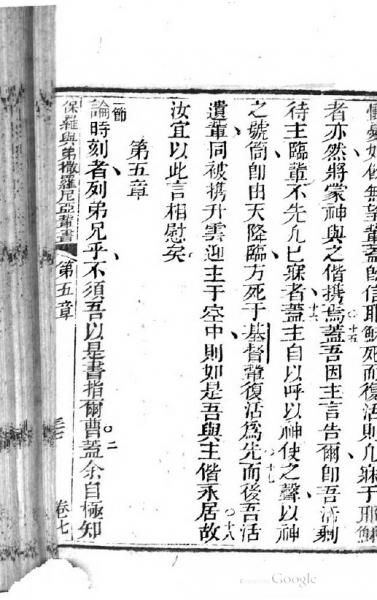 憂如他無望輩蓋卽信耶穌死而復活則凡寐于耶穌
者亦然將蒙神與之偕攜焉蓋吾因主言告爾卽吾活剩
十五
待主臨輩不先凡已寐者蓋主自以呼以神使之聲以神
十六
之號筒卽由天降臨方死于基督輩復活爲先而後吾活
十七
遺輩同被攜升雲迎主于空中則如是吾與主偕永居故
十八
汝宜以此言相慰矣
第五章
一節
論時刻者列弟兄乎不須吾以是書指爾曹蓋余自極知
二
保羅與弟撒羅尼亞輩書
第五章
卷七
Google